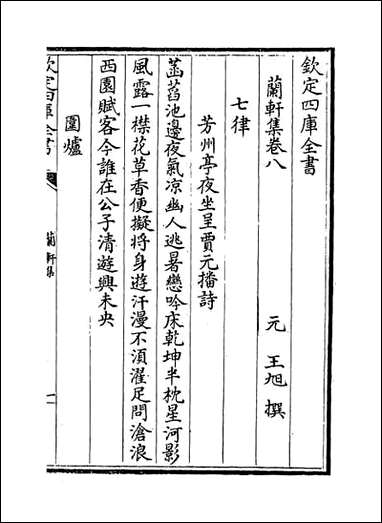 欽定四庫全書
蘭軒集卷八
元 王旭 撰
七律
芳州亭夜坐呈賈元播詩
菡萏池邊夜氣凉幽人逃暑戀吟床乾坤半枕星河影
風露一襟花草香便擬將身遊汗漫不須濯足問滄浪
西園賦客今誰在公子清遊興未央
圍爐
欽定四庫全書
蘭軒集
一